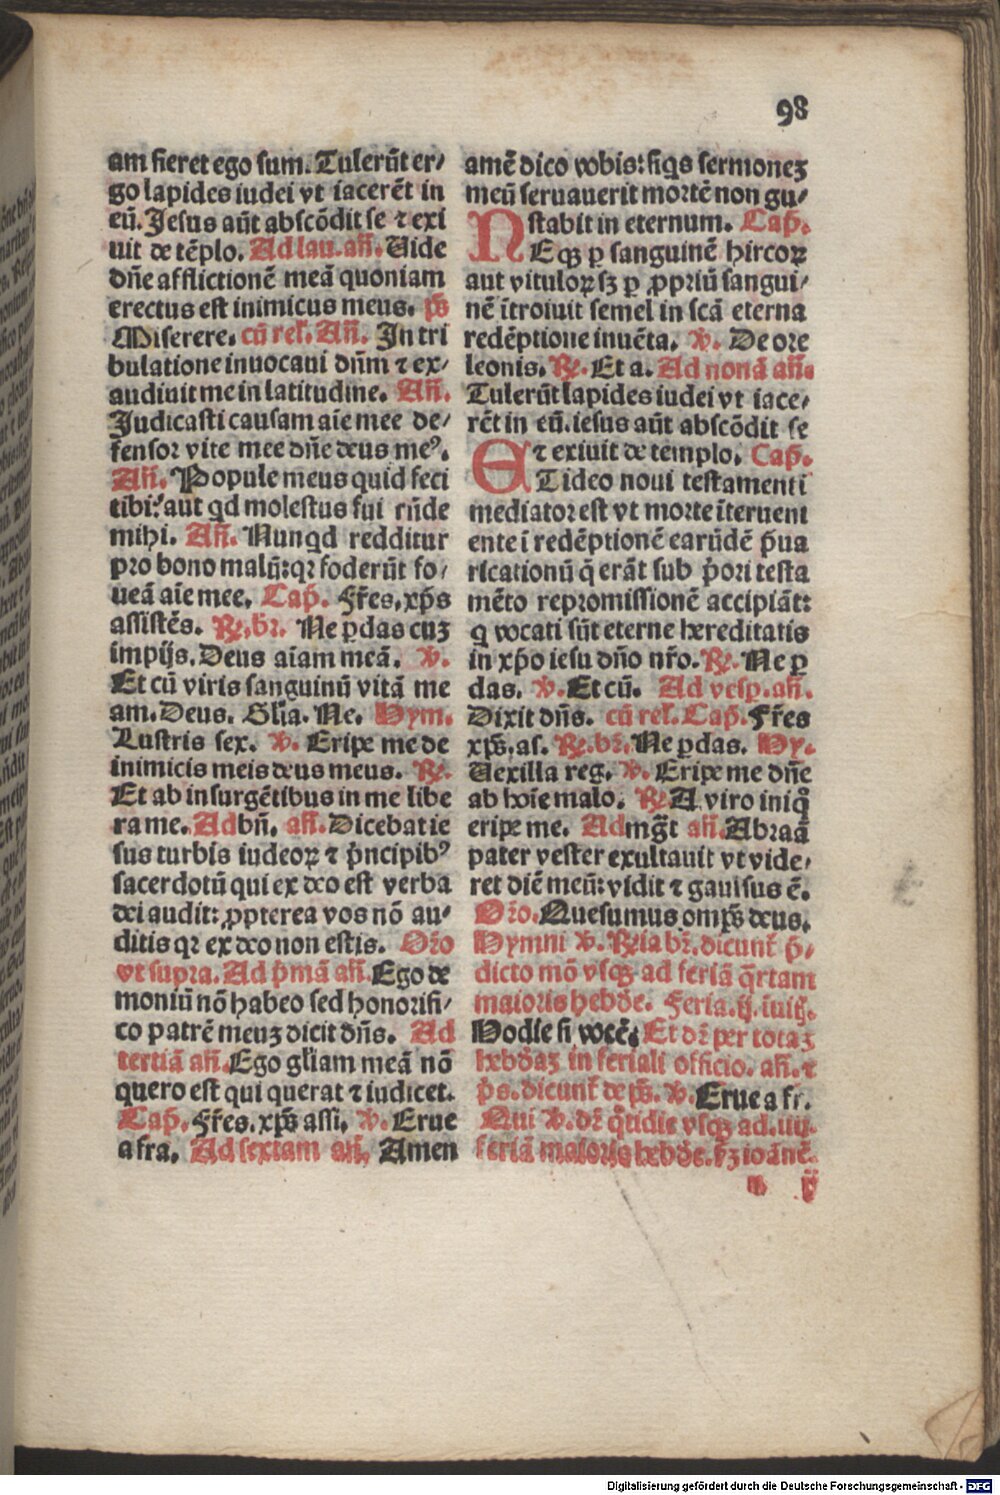 98
am fieret ego sum. Tulerūt er/
go lapides iudei vt iacerēt in
eū. Jesus aūt abscōdit se ⁊ exi
uit de tēplo. Ad lau. añ. Uide
dñe afflictionē meā quoniam
erectus est inimicus meus. ps̄
Miserere. cū rel̄. Añ. In tri
bulatione inuocaui dn̄m ⁊ ex/
audiuit me in latitudine. Añ.
Judicasti causam aīe mee de/
fensor vite mee dñe deus meꝰ.
Añ. Popule meus quid feci
tibi: aut qd molestus fui rn̄de
mihi. Añ. Nunqd redditur
pro bono malū: qꝛ foderūt fo/
ueā aīe mee. Cap̄. Fr̄es, xp̄s
assistēs. ℞. br̄. Ne p̱das cuꝫ
impijs. Deus aīam meā. ℣.
Et cū viris sanguinū vitā me
am. Deus. Gl̄ia. Ne. Hym.
Lustris sex. ℣. Eripe me de
inimicis meis deus meus. ℞.
Et ab insurgētibus in me libe
ra me. Ad bn̄. añ. Dicebat ie
sus turbis iudeoꝝ ⁊ p̄ncipibꝰ
sacerdotū qui ex deo est verba
dei audit: ꝓpterea vos nō au/
ditis qꝛ ex deo non estis. Or̄o
vt supra. Ad p̄mā añ. Ego de
moniū nō habeo sed honorifi/
co patrē meuꝫ dicit dn̄s. Ad
tertiā añ. Ego gl̄iam meā nō
quero est qui querat ⁊ iudicet.
Cap̄. Fr̄es. xp̄s assi. ℣. Erue
a fra. Ad sextam añ. Amen
amē dico vobis: siqs sermoneꝫ
meū seruauerit mortē non gu/
stabit in eternum. Cap̄.
NEqꝫ ꝑ sanguinē hircoꝝ
aut vituloꝝ sꝫ ꝑ ꝓpriū sangui/
nē ītroiuit semel in scā eterna
redēptione inuēta. ℣. De ore
leonis. ℞. Et a. Ad nonā añ.
Tulerūt lapides iudei vt iace/
rēt in eū. iesus aūt abscōdit se
⁊ exiuit de templo. Cap̄.
ETideo noui testamenti
mediator est vt morte īteruent
ente ī redēptionē earūdē p̄ua
ricationū q̄ erāt sub p̄ori testa
mēto repromissionē accipiāt:
q vocati sūt eterne hereditatis
in xp̄o iesu dño nr̄o. ℞. Ne ꝑ
das. ℣. Et cū. Ad vesp. añ.
Dixit dn̄s. cū rel̄. Cap̄. Fr̄es
xp̄s, as. ℞. br̄. Ne ꝑdas. Hy.
Uexilla reg. ℣. Eripe me dñe
ab hoīe malo. ℞ A viro iniq̊
eripe me. Ad mg̃t añ. Abraā
pater vester exultauit vt vide/
ret diē meū: vidit ⁊ gauisus ē.
Or̄o. Quesumus omp̄s deus.
Hymni ℣. ℞ia br̄. dicunt̄ p̄/
dicto mō vsqꝫ ad feriā q̄rtam
maioris hebde. Feria. ij. iuitj.
Hodie si vocē. Et dr̄ per totaꝫ
hebdaꝫ in feriali officio. añ. ⁊
p̄s. dicunt̄ de ps̄. ℣. Erue a fr.
Qui ℣. dr̄ q̊tidie vsqꝫ ad. iiij.
feriā maioris hebde. p̄ꝫ ioānē.
n ij
Digitalisierung gefördert durch die Deutsche Forschungsgemeinschaft - DFG